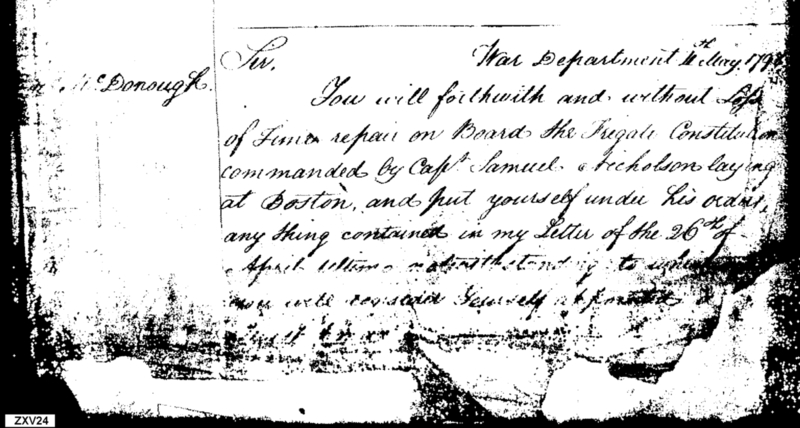 McDonough.
Sir, War Department 11th May 1798
You will forthwith and without Loss
of Time repair on Board the Frigate Constitution
commanded by Capt Samuel Nicholson laying
at Boston, and put yourself under his orders,
any thing contained in my Letter of the 26th of
April ultimo notwithstanding to
you will consider Yourself appointed
ZXV24